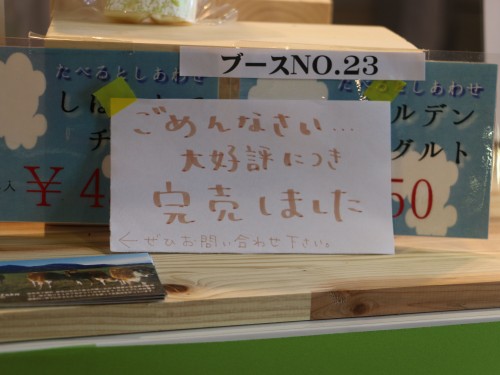 ブースNO.23
たべるとしあわせ
しぼ
チ
入 ¥4
たべるとしあわせ
ルデン
グルト
50
ごめんなさい…
大好評につき
完売しました
←ぜひお問い合わせ下さい。